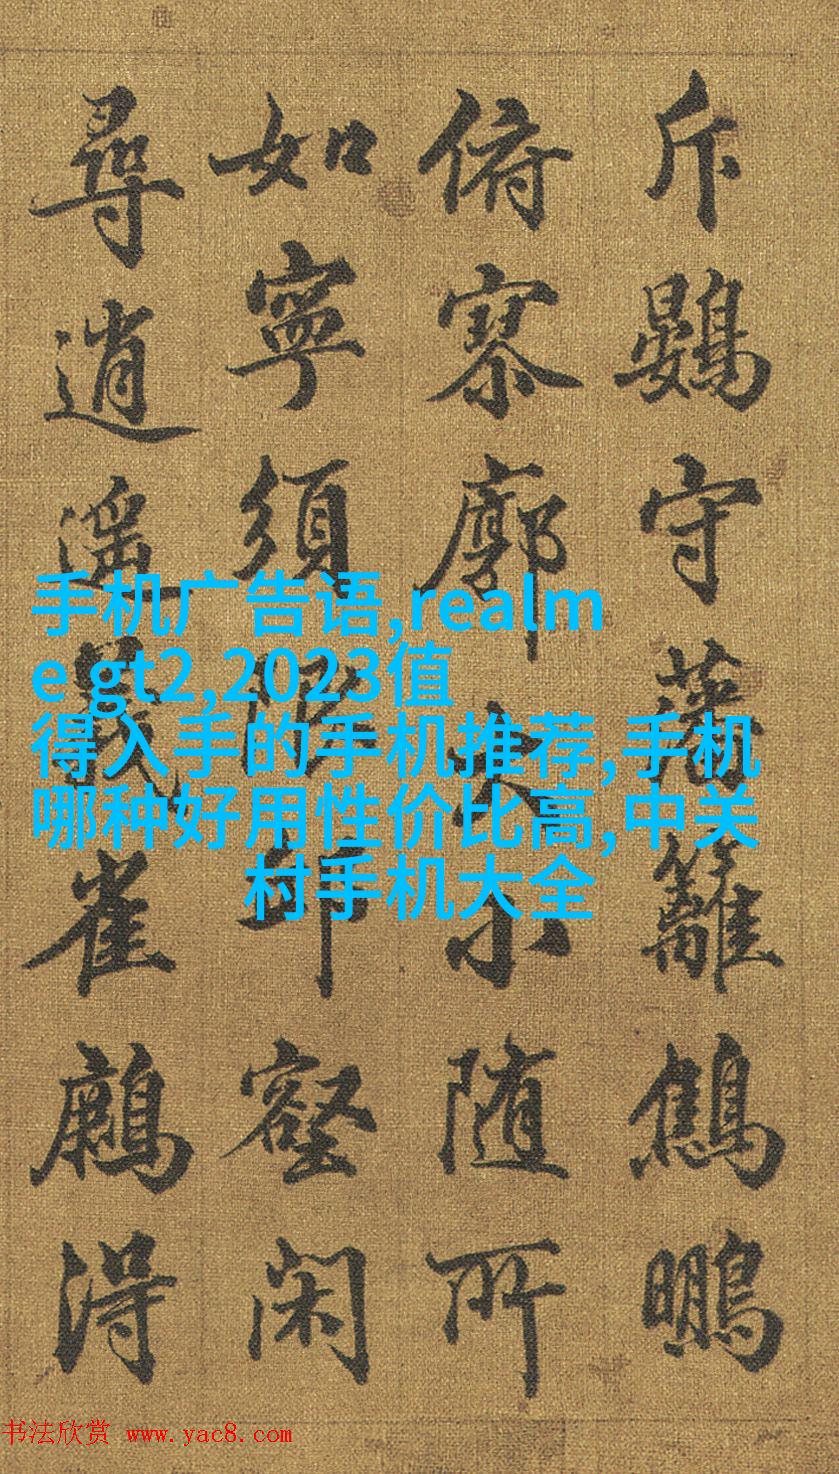 斥鷃守藩籬鷦鵬
俯寥廓大小随所
如寧須限邱壑閑
尋逍遥義雀得
手机广告语,realm
e gt2,2023值
得入手的手机推荐,手机
哪种好用性价比高,中关
村手机大全
书法欣赏 www.yac8.com